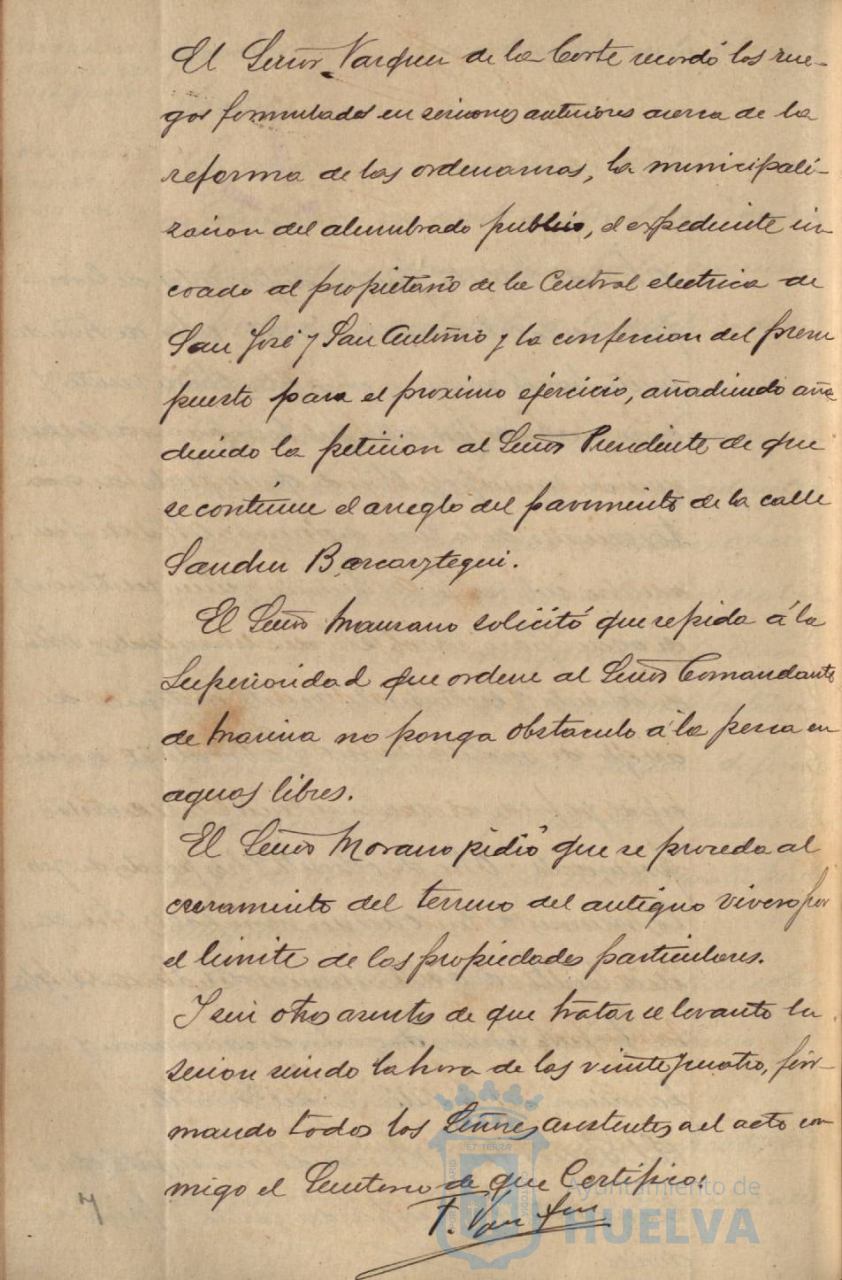 El Señor Vazquez de la Corte recordó los rue-
gos formulados en sesiones anteriores acerca de la
reforma de las ordenanzas, la municipali-
zacion del alumbrado publico, el expediente in
coado al propietario de la Central electrica de
San José y San Antonio y la confeccion del presu
puesto para el proximo ejercicio, añadiendo aña
diendo la peticion al Señor Presidente de que
se continue el arreglo del pavimento de la calle
Sanchez Barcaiztegui.
El Señor Manzano solicitó que se pida á la
Superioridad que ordene al Señor Comandante
de Marina no ponga obstaculo á la pesca en
aguas libres.
El Señor Morano pidió que se proceda al
cerramiento del terreno del antiguo vivero por
el limite de las propiedades particulares.
Y sin otros asuntos de que tratar se levanto la
sesion siendo la hora de las veinte y cuatro, fir-
mando todos los Señores asistentes al acto con
migo el Secretario de que Certifico.
Ayuntamiento de
HUELVA